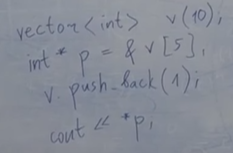 vector<int> v(10);
int * p = & v[5];
v. push_back(1);
cout << *p;